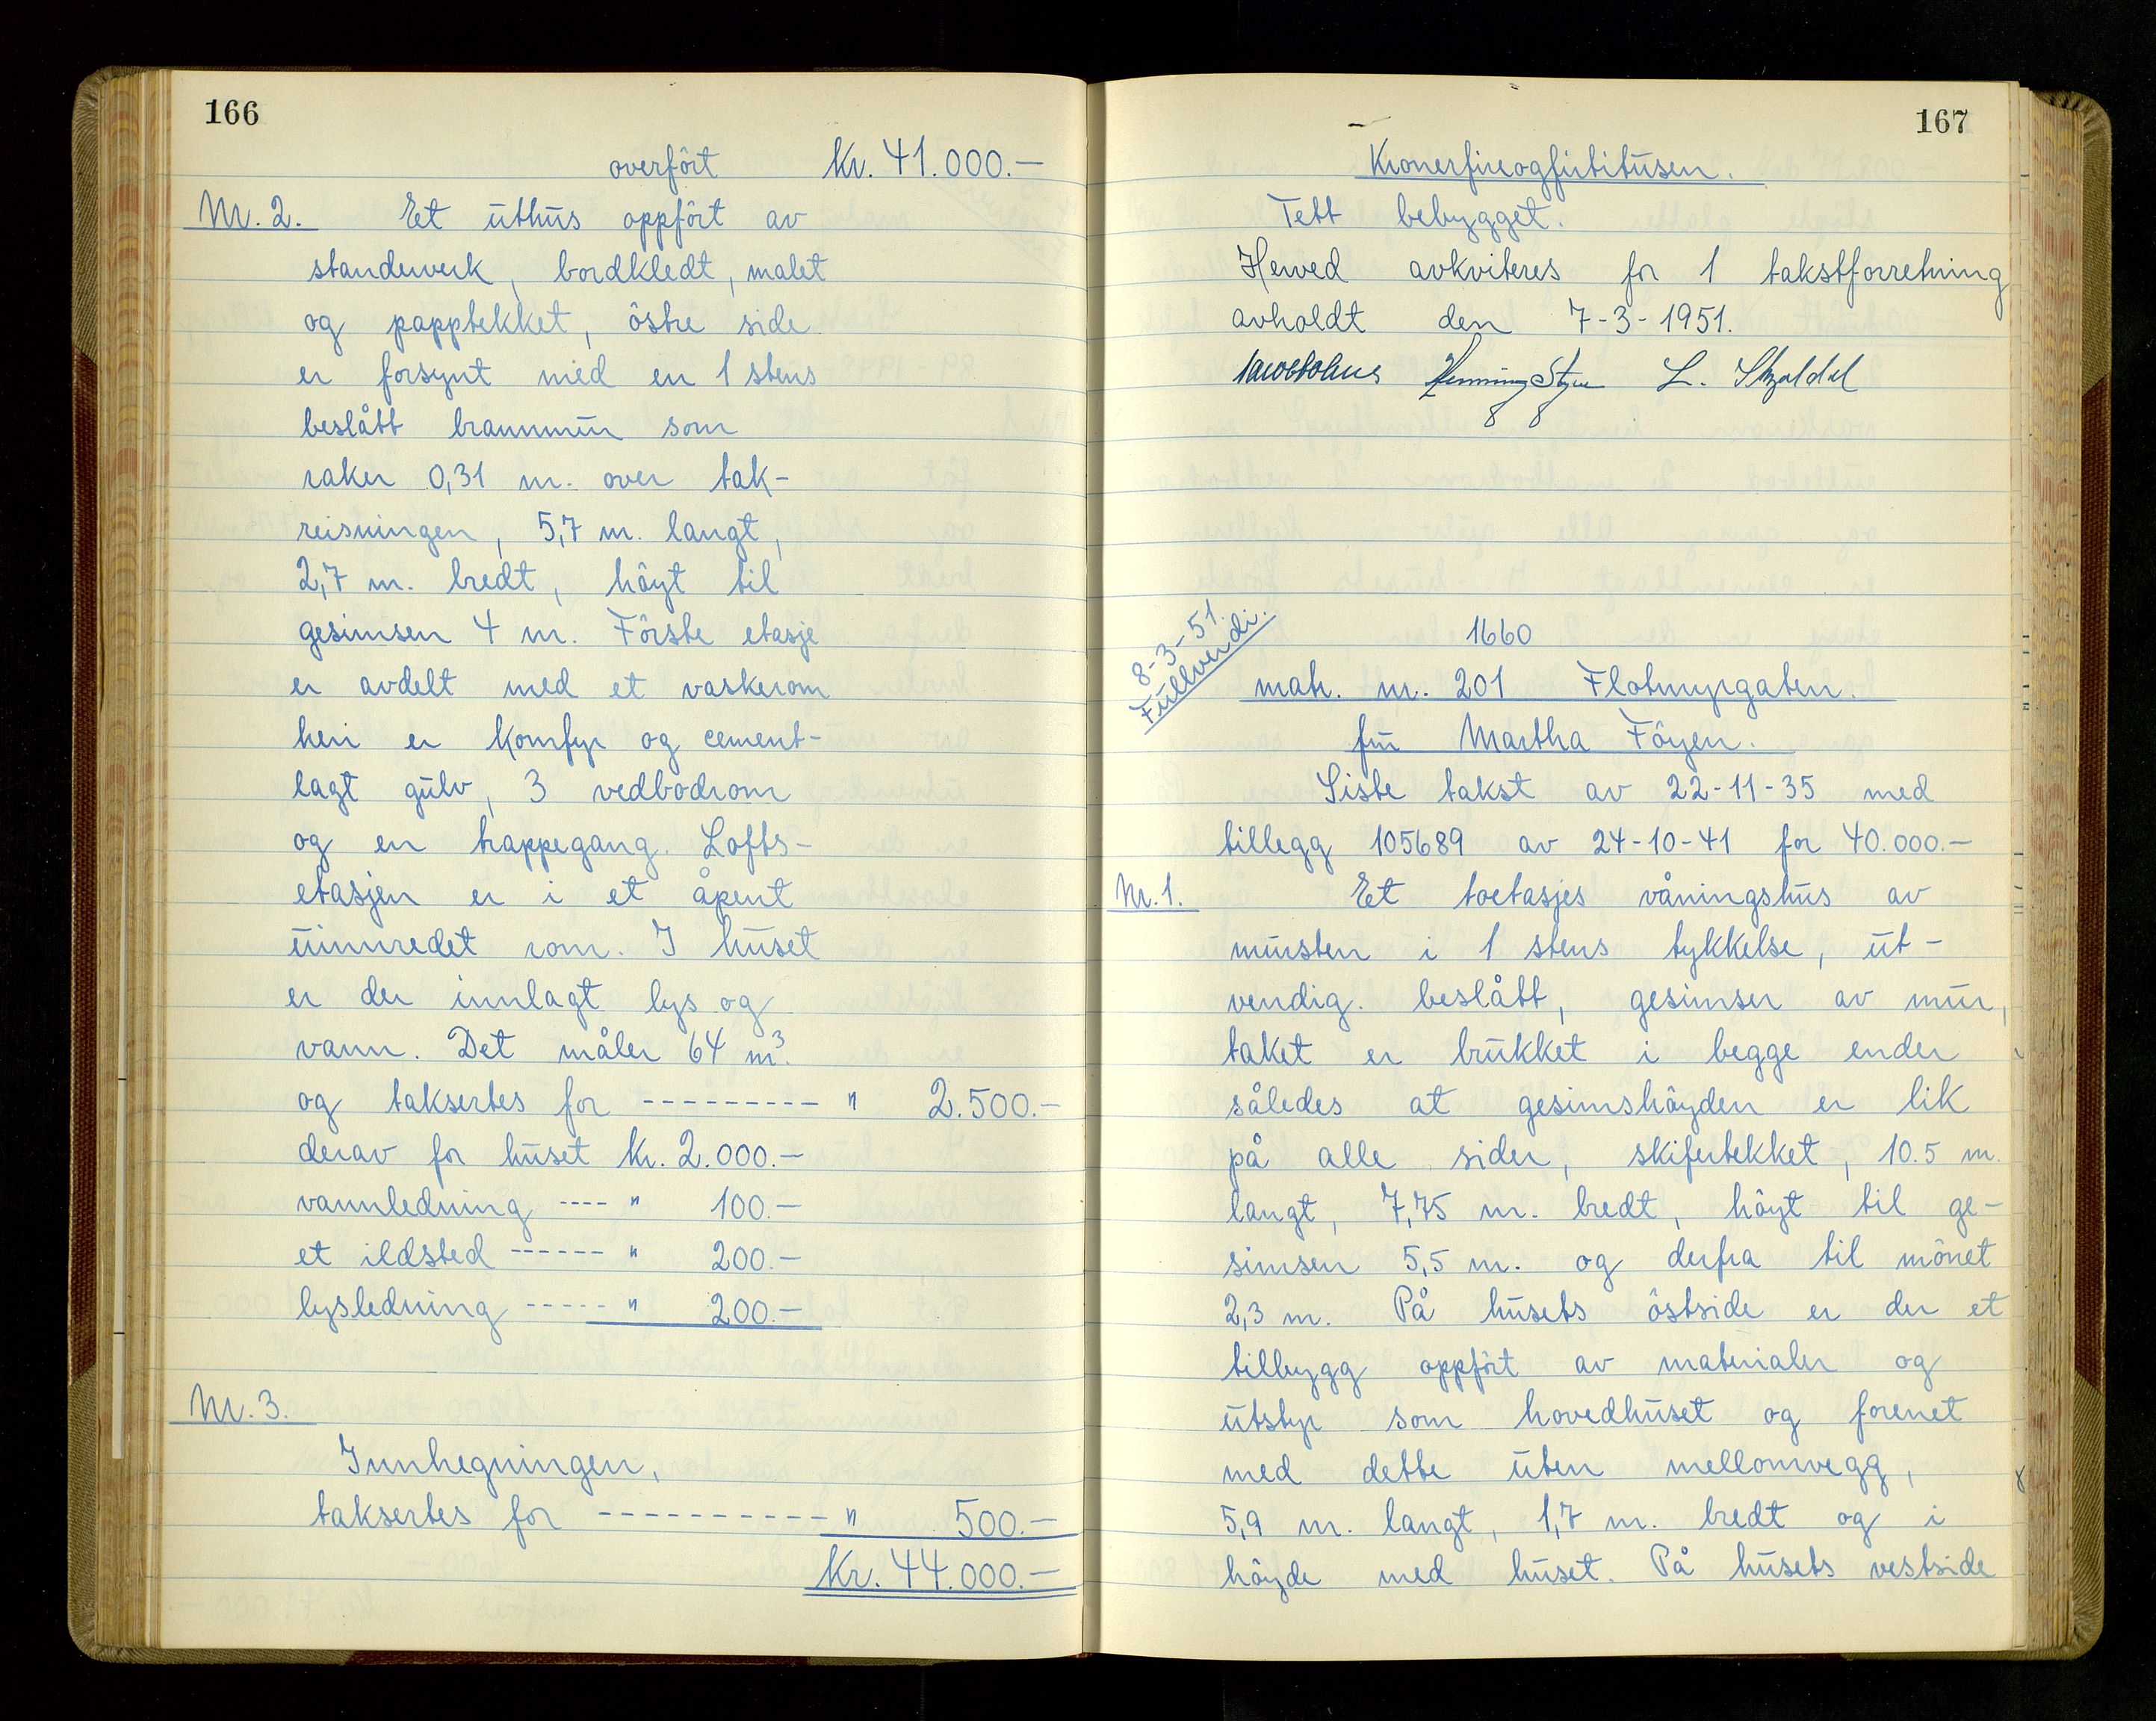 166
overført Kr. 41.000.-
Nr. 2. Et uthus oppført av
standerverk, bordkledt, malet
og papptekket, østre side
er forsynt med en 1 stens
beslått brannmur som
raker 0,31 m. over tak-
reisningen, 5,7 m. langt,
2,7 m. bredt, høyt til
gesimsen 4 m. Første etasje
er avdelt med et vaskerom
heri er komfyr og cement-
lagt gulv, 3 vedbodrom
og en trappegang. Lofts-
etasjen er i et åpent
uinnredet rom. I huset
er der innlagt lys og
vann. Det måler 64 m³.
og taksertes for --------- " 2.500.-
derav for huset Kr. 2.000.-
vannledning ---- " 100.-
et ildsted ------ " 200.-
lysledning ----- " 200.-
Nr. 3.
Innhegningen,
taksertes for ----------- " 500.-
Kr. 44.000.-
167
Kronerfireogførtitusen.
Tett bebygget.
Herved avkviteres for 1 takstforretning
avholdt den 7-3-1951.
L.
8 8
8-3-51.
Fullverdi.
1660
matr. nr. 201 Flotmyrgaten.
fru Martha Føyen.
Siste takst av 22-11-35 med
tillegg 105689 av 24-10-41 for 40.000.-
Nr. 1. Et toetasjes våningshus av
mursten i 1 stens tykkelse, ut-
vendig. beslått, gesimser av mur,
taket er brukket i begge ender
således at gesimshøyden er lik
på alle sider, skifertekket, 10.5 m.
langt, 7,75 m. bredt, høyt til ge-
simsen 5,5 m. og derfra til mønet
2,3 m. På husets østside er der et
tilbygg oppført av materialer og
utstyr som hovedhuset og forenet
med dette uten mellomvegg,
5,9 m. langt, 1,7 m. bredt og i
høyde med huset. På husets vestside